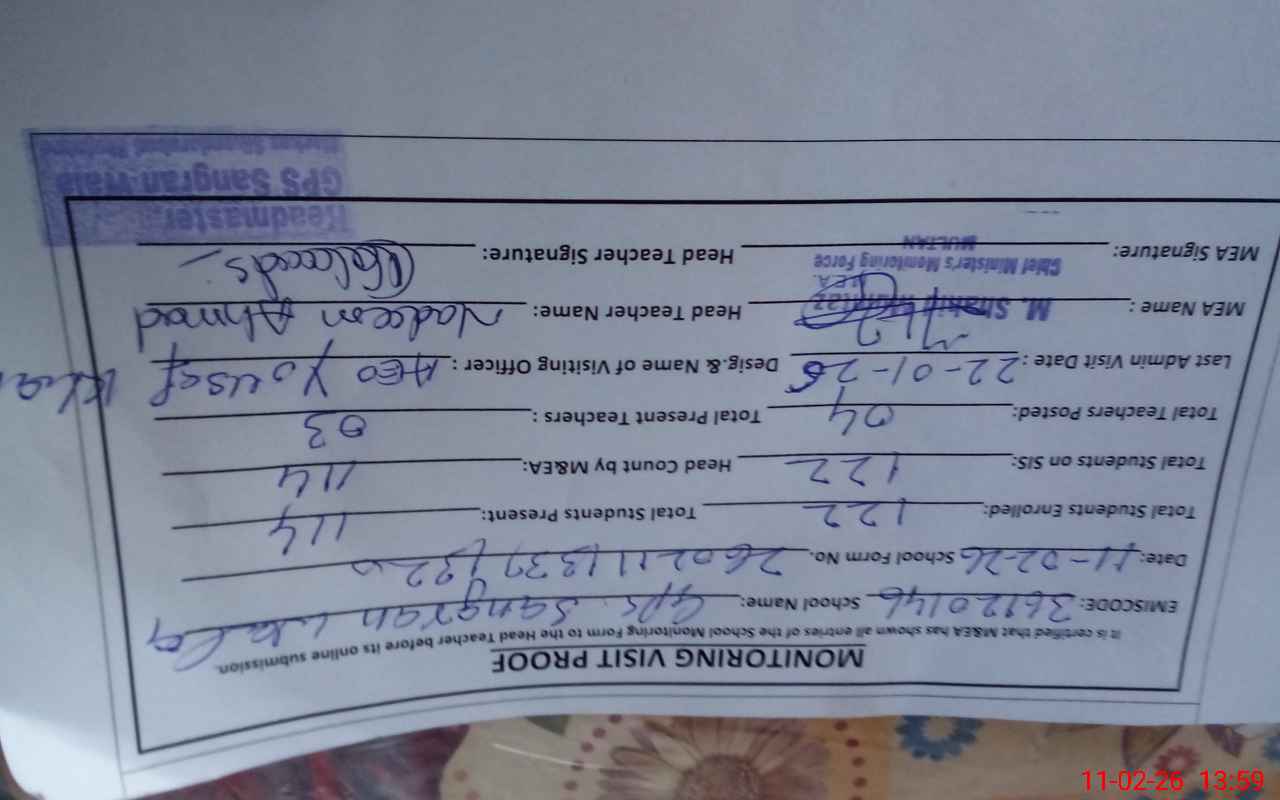 MONITORING VISIT PROOF
It is certified that M&EA has shown all entries of the School Monitoring Form to the Head Teacher before its online submission.
EMISCODE: 36120146 School Name: GPS. Sangran wala
Date: 11-02-26 School Form No.
Total Students Enrolled: 122 Total Students Present: 114
Total Students on SIS: 122 Head Count by M&EA: 114
Total Teachers Posted: 04 Total Present Teachers : 03
Last Admin Visit Date : 22-01-26 Desig.& Name of Visiting Officer : AEO Yousaf Khan
MEA Name : M. Head Teacher Name: Nadeem Ahmad
M.E.A.
Chief Minister's Monitoring Force
MULTAN
MEA Signature: Head Teacher Signature:
Headmaster
GPS Sangran Wala
11-02-26 13:59